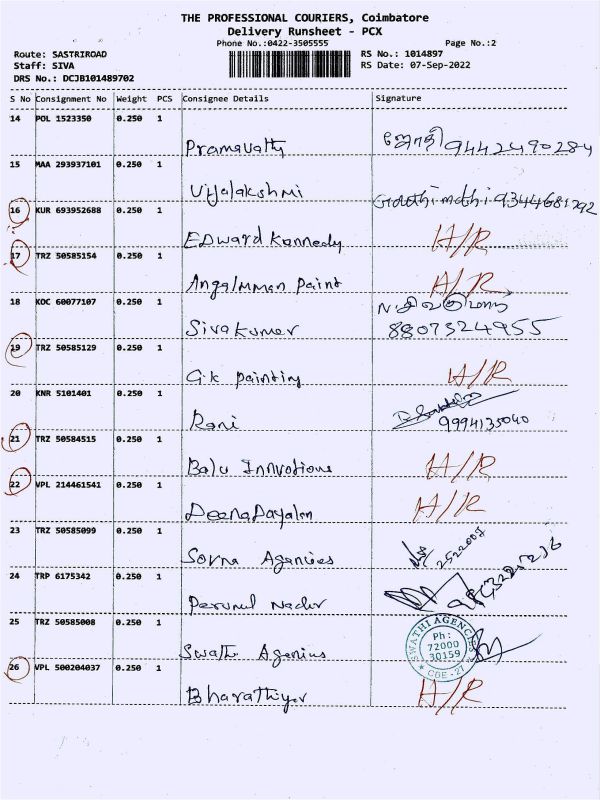 THE PROFESSIONAL COURIERS, Coimbatore
Delivery Runsheet - PCX
Phone No.:0422-3505555 Page No.:2
Route: SASTRIROAD RS No.: 1014897
Staff: SIVA RS Date: 07-Sep-2022
DRS No.: DCJB101489702
S No Consignment No Weight PCS Consignee Details Signature
14 POL 1523350 0.250 1
Pramavathy ஜோதி 9442490284
15 MAA 293937101 0.250 1
Vijalakshmi 9344681792
16 KUR 693952688 0.250 1
EDward Kennedy H/R
17 TRZ 50585154 0.250 1
Angalmman Paint H/R
18 KOC 60077107 0.250 1
Sivakumer 8807324955
19 TRZ 50585129 0.250 1
G.K Painting H/R
20 KNR 5101401 0.250 1
Rani 9994135040
21 TRZ 50584515 0.250 1
Balu Innvotions H/R
22 VPL 214461541 0.250 1
DeenaDayalan H/R
23 TRZ 50585099 0.250 1
Sorna Agencies
24 TRP 6175342 0.250 1
Perumul Nader
25 TRZ 50585008 0.250 1
Swath Agenius
SWATHI AGENCIES
Ph :
72000
30159
CBE - 27
26 VPL 500204037 0.250 1
Bharathiyor H/R